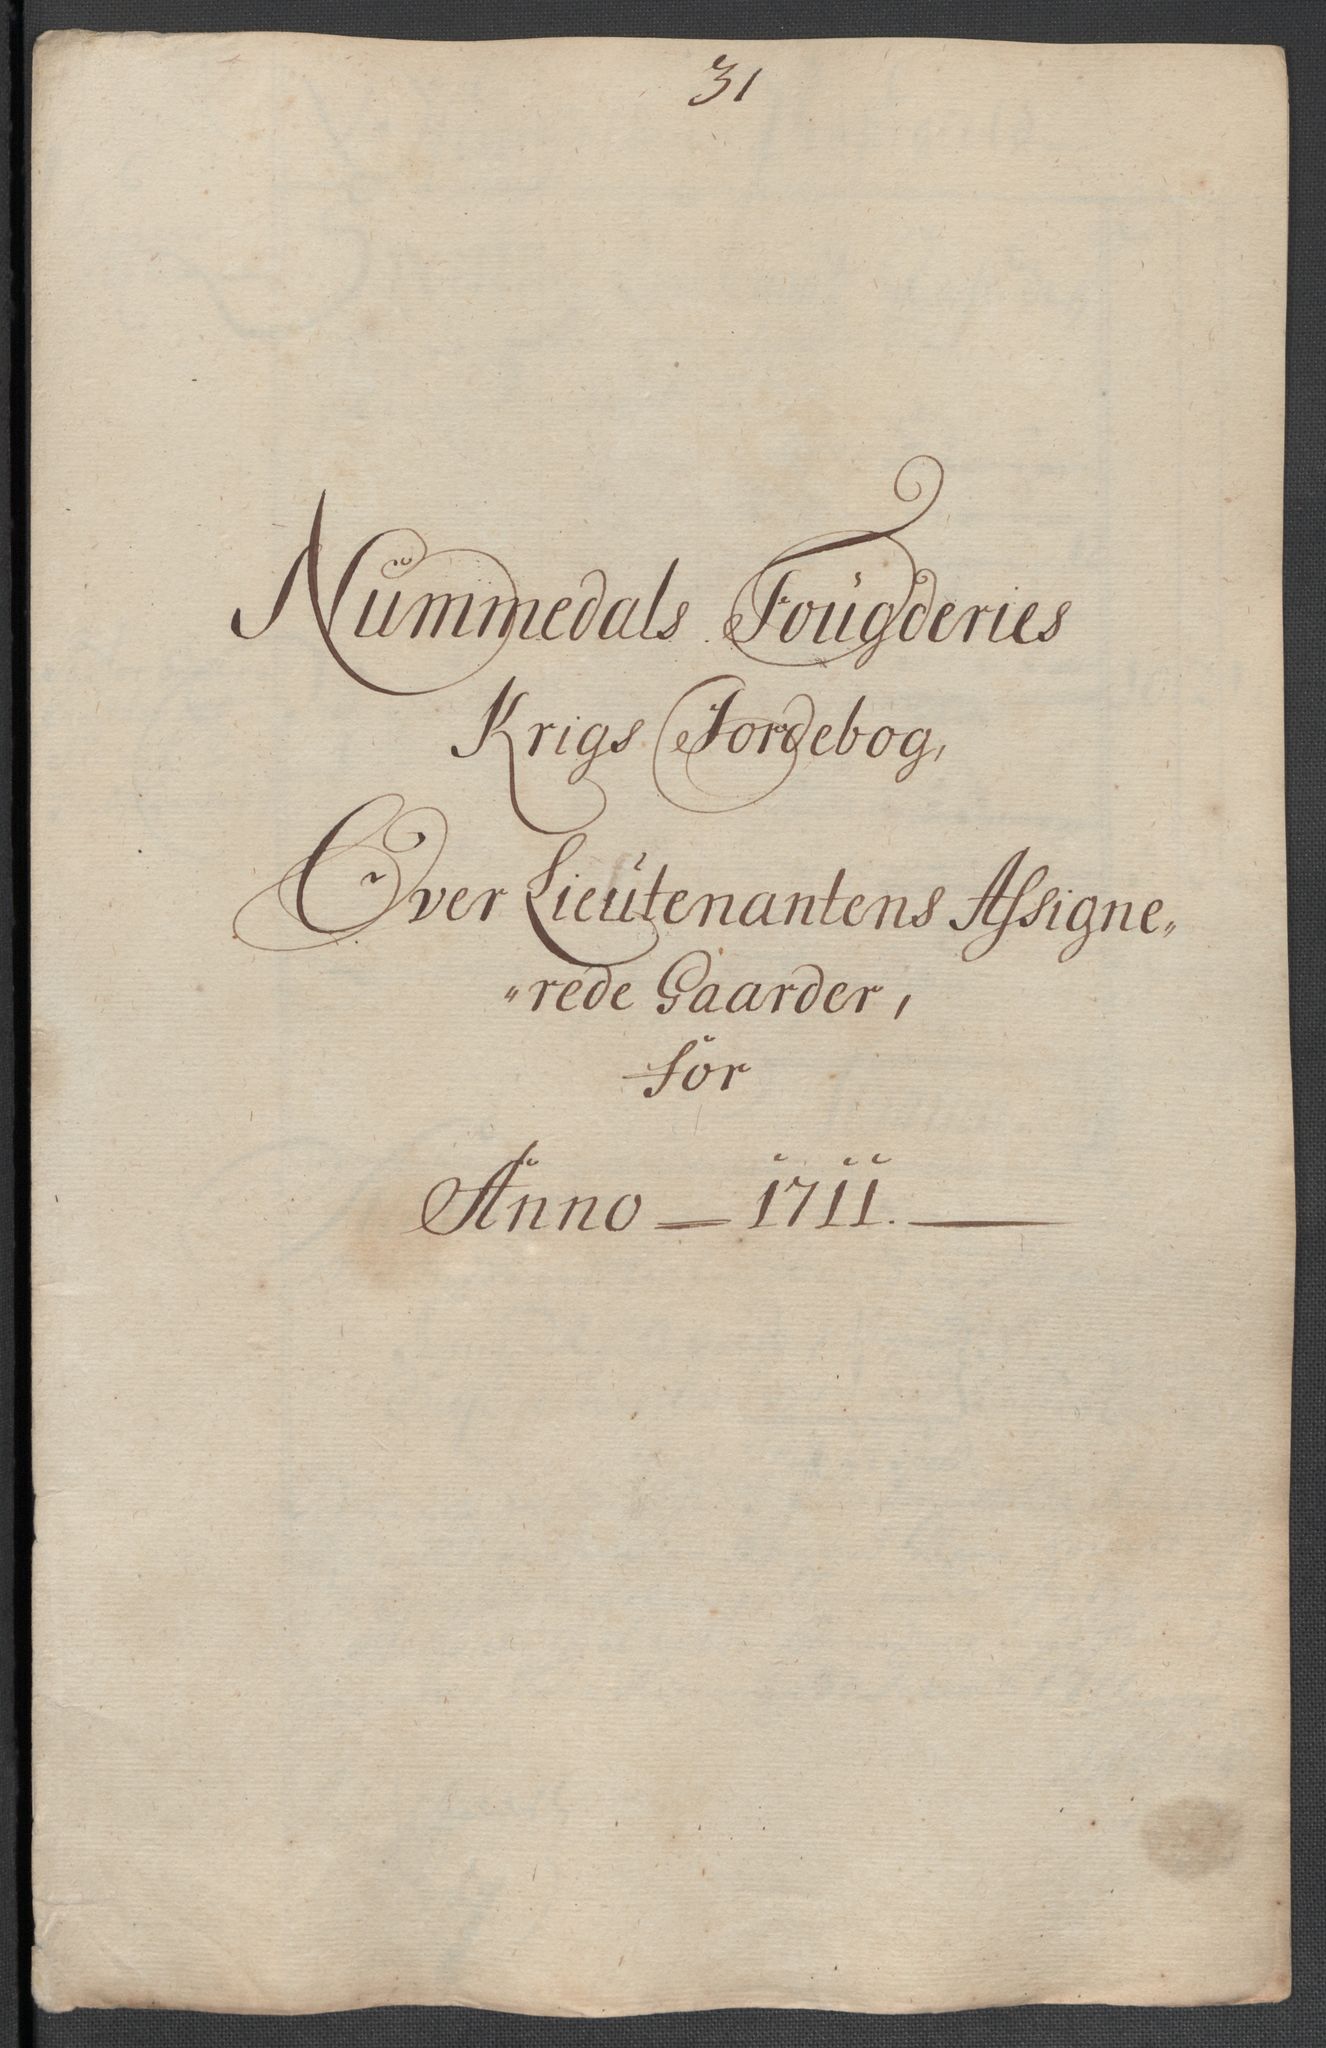 31
Nummedals Fougderies
Krigs Jordebog,
Over Lieutenantens Assigne„
„rede Gaarder,
for
Anno — 1711. —